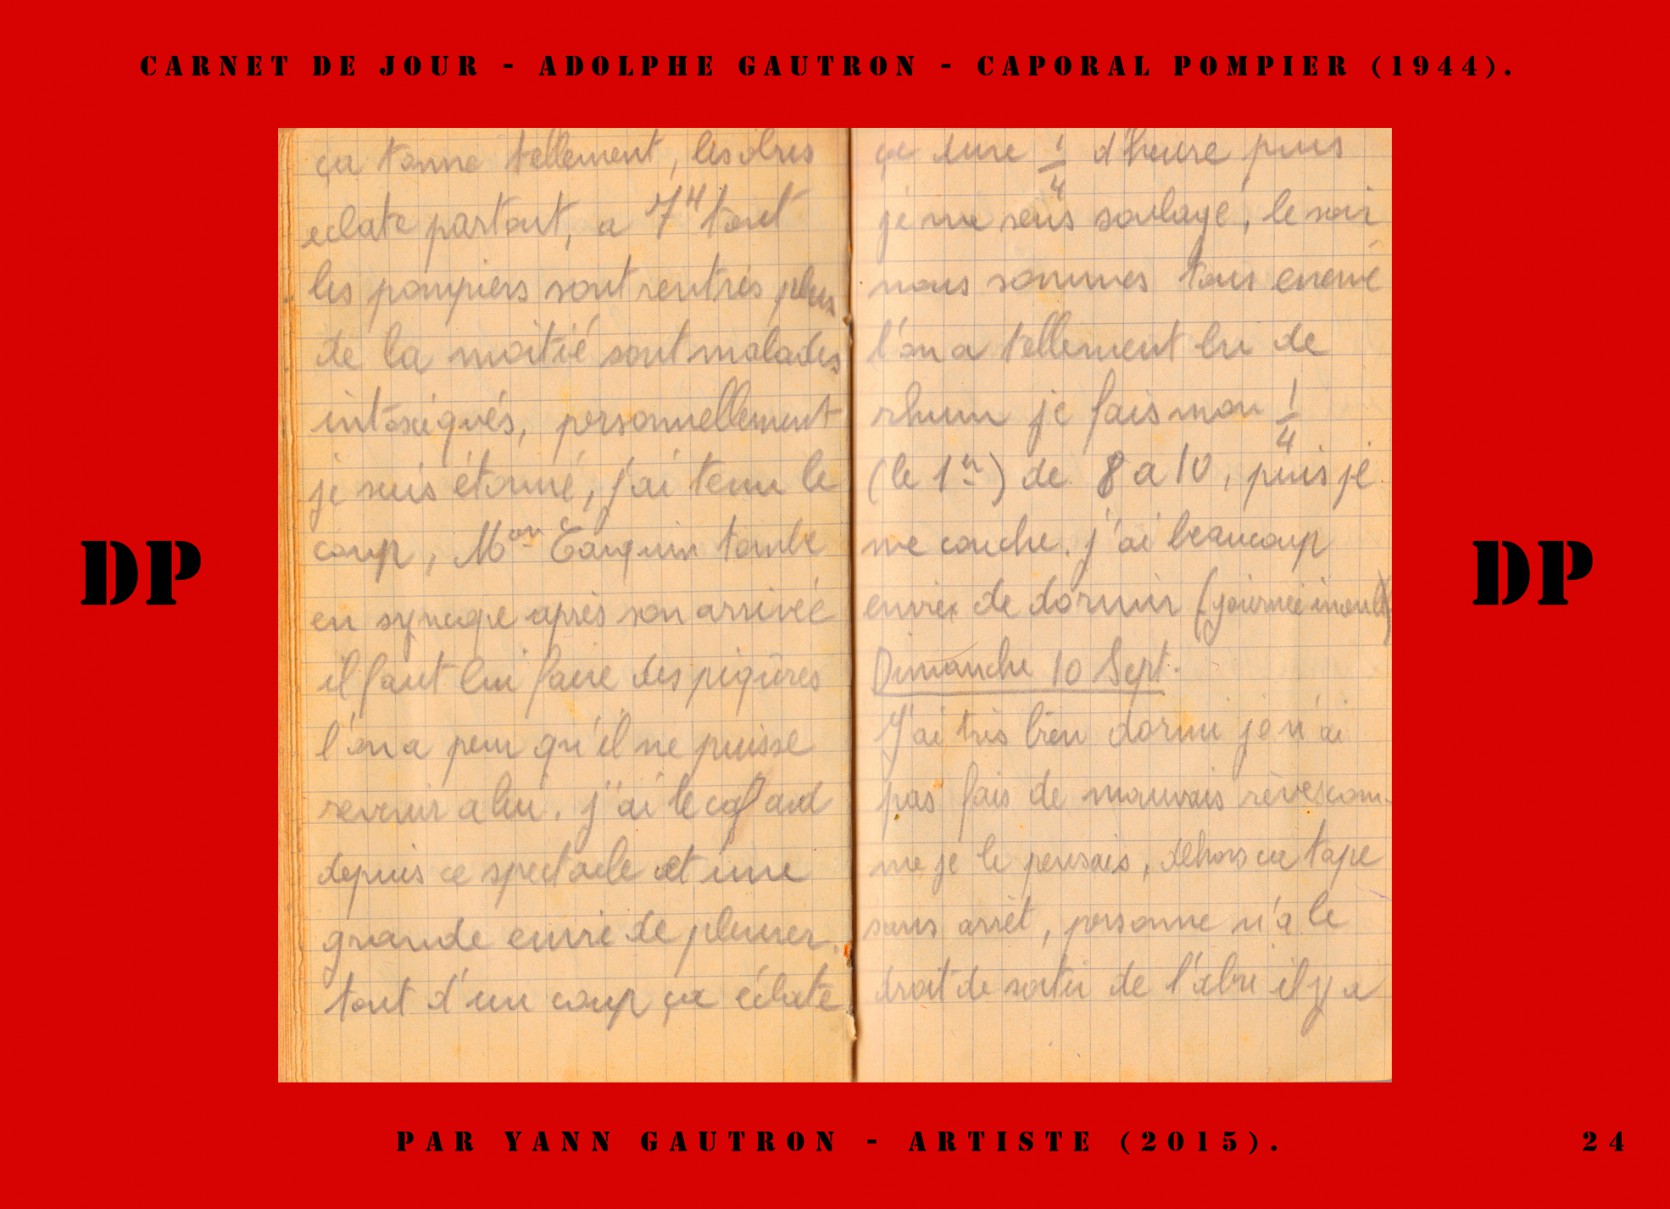 CARNET DE JOUR - ADOLPHE GAUTRON - CAPORAL POMPIER (1944).
ça tonne tellement, les obus
eclate partout, a 7H tout
les pompiers sont rentrés plus
de la moitié sont malades
intoxiqués, personnellement
je suis étonné, j'ai tenu le
coup, tombe
en syncope après son arrivée
il faut lui faire des piqûres
l'on a peur qu'il ne puisse
revenir a lui. j'ai le cafard
depuis ce spectacle et une
grande envie de pleurer.
tout d'un coup ça éclate
ça dure 1/4 d'heure puis
je me sens soulagé, le soir
nous sommes tous enervé
l'on a tellement bu de
rhum je fais mon 1/4
(le 1er) de 8 a 10, puis je
me couche. j'ai beaucoup
envie de dormir (journée inouï)
Dimanche 10 Sept.
J'ai très bien dormi je n'ai
pas fais de mauvais rêves com-
me je le pensais, dehors ca tape
sans arrêt, personne n'a le
droit de sortir de l'abri il y a
DP
DP
PAR YANN GAUTRON - ARTISTE (2015).
24